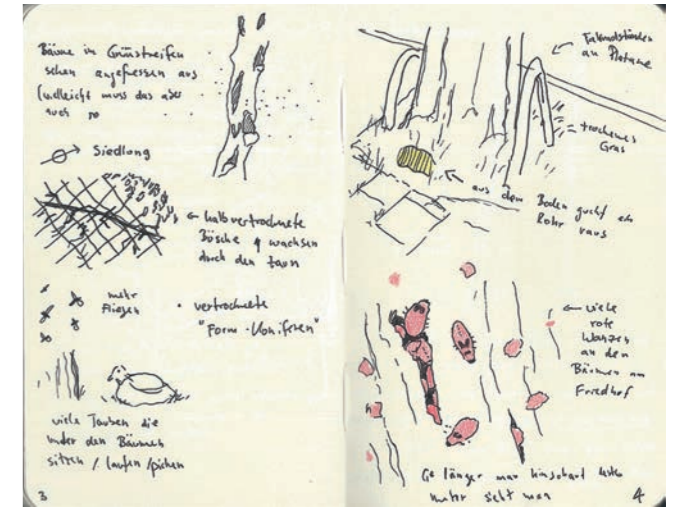 Bäume im Grünstreifen
sehen angefressen aus
(vielleicht muss das aber
auch so
Siedlung
← halbvertrocknete
Büsche wachsen
durch den Zaun
mehr
Fliegen
• vertrocknete
"Form-Koniferen"
viele Tauben die
unter den Bäumen
sitzen / laufen / picken
3
Fahrradständer
an Platane
trockenes
Gras
aus dem Boden guckt ein
Rohr raus
← viele
rote
Wanzen
an den
Bäumen am
Friedhof
Je länger man hinschaut desto
mehr sieht man
4